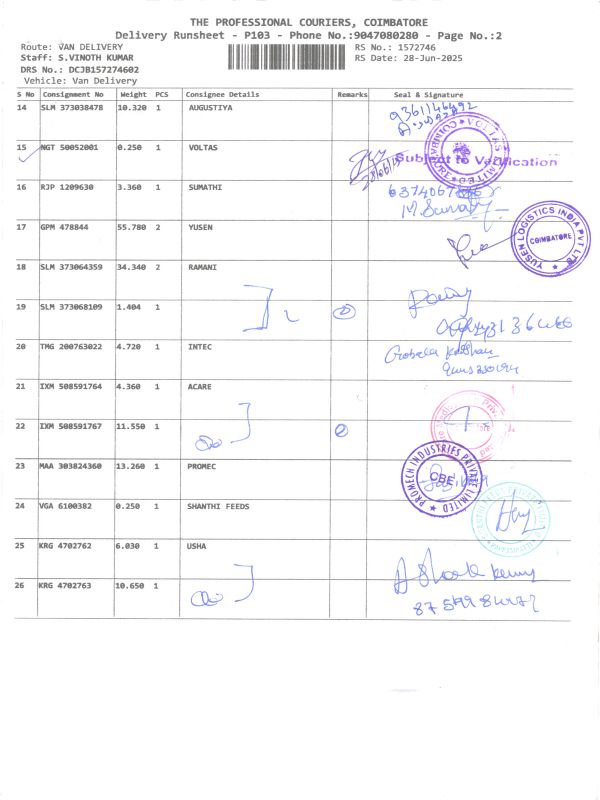 THE PROFESSIONAL COURIERS, COIMBATORE
Delivery Runsheet - P103 - Phone No.:9047080280 - Page No.:2
Route: VAN DELIVERY RS No.: 1572746
Staff: S.VINOTH KUMAR RS Date: 28-Jun-2025
DRS No.: DCJB157274602
Vehicle: Van Delivery
S No Consignment No Weight PCS Consignee Details Remarks Seal & Signature
14 SLM 373038478 10.320 1 AUGUSTIYA
15 NGT 50052001 0.250 1 VOLTAS
Subject to Verification
16 RJP 1209630 3.360 1 SUMATHI
17 GPM 478844 55.780 2 YUSEN
YUSEN LOGISTICS INDIA PVT LTD
COIMBATORE
18 SLM 373064359 34.340 2 RAMANI
19 SLM 373068109 1.404 1
20 TMG 200763022 4.720 1 INTEC
21 IXM 508591764 4.360 1 ACARE
22 IXM 508591767 11.550 1
23 MAA 303824360 13.260 1 PROMEC
PROMECH INDUSTRIES PRIVATE LIMITED
CBE
24 VGA 6100382 0.250 1 SHANTHI FEEDS
25 KRG 4702762 6.030 1 USHA
26 KRG 4702763 10.650 1